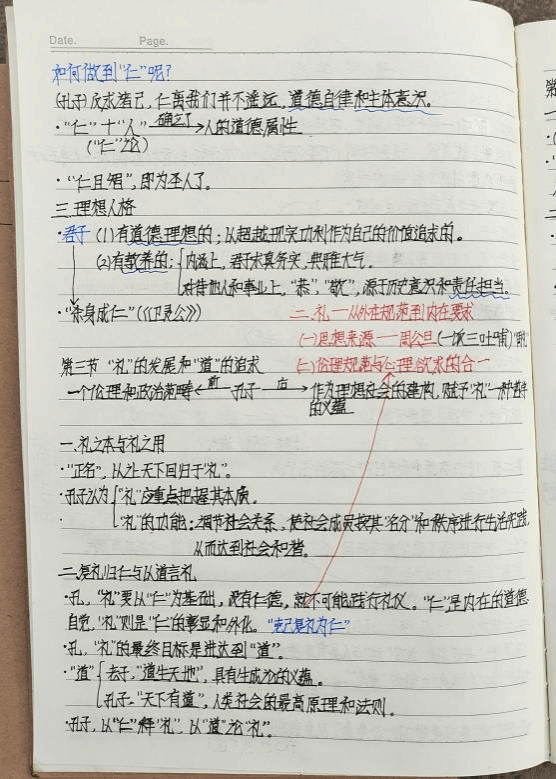 Date.
Page.
如何做到"仁"呢?
(孔子)反求诸己,仁离我们并不遥远,道德自律和主体意识。
·"仁"十"人"确立了→人的道德属性
("仁"论)
·"仁且智",即为圣人了。
三.理想人格
·君子 (1)有道德理想的;以超越现实功利作为自己的价值追求的。
(2)有教养的:内涵上,君子求真务实,典雅大气。
对待他人和事业上,"恭","敬",源于历史意识和责任担当。
·"杀身成仁"(《卫灵公》)
二.礼——从外在规范到内在要求
(一)思想来源——周公旦(一饭三吐哺)
(二)伦理规范与心理欲求的合一
第三节 "礼"的发展和"道"的追求
一个伦理和政治范畴←前 孔子 后→作为理想社会的建构,赋予"礼"一种哲学
的义蕴
一.礼之本与礼之用
·"正名",以让天下回归于"礼"。
·孔子认为"礼"应重点把握其本质。
·"礼"的功能:调节社会关系,使社会成员按其"名分"和秩序进行生活实践,
从而达到社会和谐。
二.复礼归仁与以道言礼
·孔,"礼"要以"仁"为基础,没有仁德,就不可能践行礼仪。"仁"是内在的道德
自觉,"礼"则是"仁"的彰显和外化。"克己复礼为仁"
·孔,"礼"的最终目标是进达到"道"。
·"道"老子,"道生天地",具有生成论的义蕴。
孔子,"天下有道",人类社会的最高原理和法则。
·孔子,以"仁"释"礼",以"道"论"礼"。